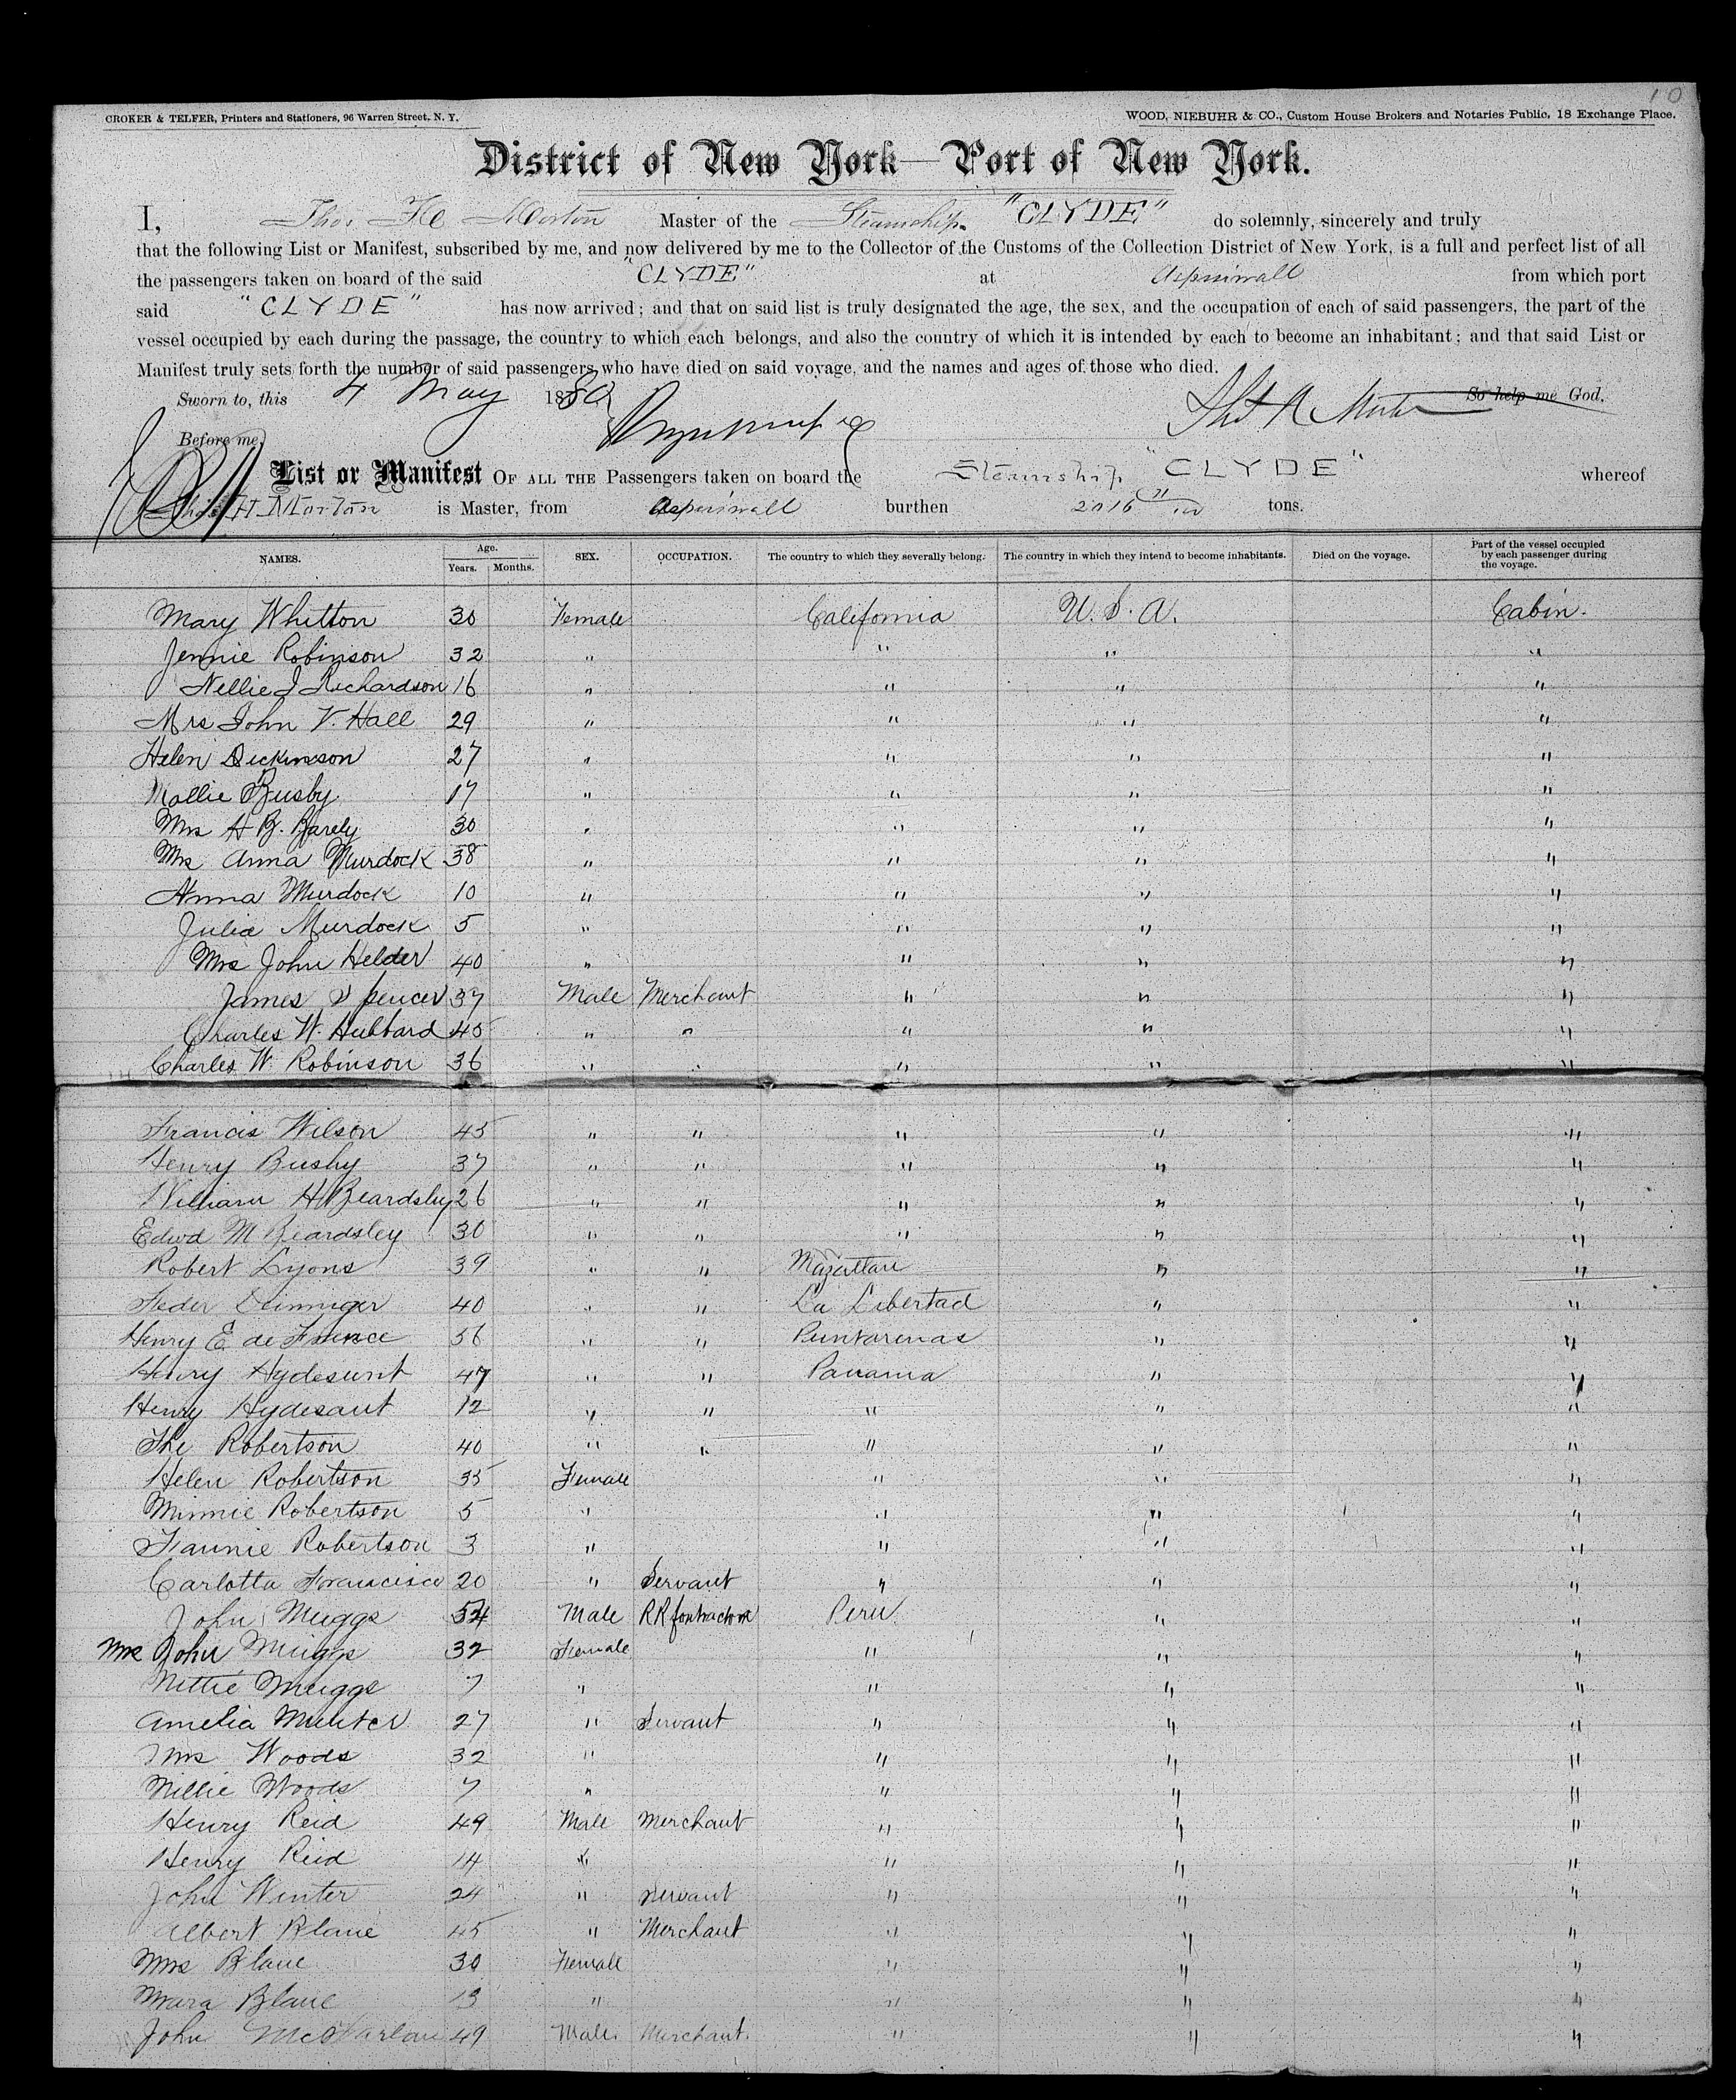 10
CROKER & TELFER, Printers and Stationers, 96 Warren Street, N. Y.
WOOD, NIEBUHR & CO., Custom House Brokers and Notaries Public, 18 Exchange Place.
District of New York—Port of New York.
I, Thos H Morton Master of the Steamship "CLYDE" do solemnly, sincerely and truly
that the following List or Manifest, subscribed by me, and now delivered by me to the Collector of the Customs of the Collection District of New York, is a full and perfect list of all
the passengers taken on board of the said "CLYDE" at Aspinwall from which port
said "CLYDE" has now arrived; and that on said list is truly designated the age, the sex, and the occupation of each of said passengers, the part of the
vessel occupied by each during the passage, the country to which each belongs, and also the country of which it is intended by each to become an inhabitant; and that said List or
Manifest truly sets forth the number of said passengers who have died on said voyage, and the names and ages of those who died.
Sworn to, this 4 May 1880 So help me God.
Before me,
List or Manifest OF ALL THE Passengers taken on board the Steamship "CLYDE" whereof
Thos H Morton is Master, from Aspinwall burthen 2016 tons.
NAMES. Age. Years. Months. SEX. OCCUPATION. The country to which they severally belong. The country in which they intend to become inhabitants. Died on the voyage. Part of the vessel occupied by each passenger during the voyage.
Mary Whitton 30 Female California U. S. A. Cabin.
Jennie Robinson 32 " " " "
Nellie J Richardson 16 " " " "
Mrs John V. Hall 29 " " " "
Helen Dickinson 27 " " " "
Mollie Busby 17 " " " "
Mrs H B. 30 " " " "
Mrs Anna Murdock 38 " " " "
Anna Murdock 10 " " " "
Julia Murdock 5 " " " "
Mrs John Helder 40 " " " "
James Spencer 37 Male Merchant " " "
Charles W. Hubbard 45 " " " " "
Charles W. Robinson 36 " " " " "
Francis Wilson 45 " " " " "
Henry Busby 37 " " " " "
William H Beardsley 26 " " " " "
Edwd M Beardsley 30 " " " " "
Robert Lyons 39 " " Mazattan " "
40 " " La Libertad " "
Henry E de France 56 " " Puntarenas " "
Henry 47 " " Panama " "
Henry Hydesant 12 " " " " "
Robertson 40 " " " " "
Helen Robertson 35 Female " " "
Minnie Robertson 5 " " " "
Fannie Robertson 3 " " " "
Carlotta Francisca 20 " Servant " " "
John Meiggs 54 Male RR Contractor Peru " "
Mrs John Meiggs 32 Female " " "
Nettie Meiggs 7 " " " "
Amelia 27 " Servant " " "
Mrs Woods 32 " " " "
Millie Woods 7 " " " "
Henry Reid 49 Male Merchant " " "
Henry Reid 14 " " " "
John Winter 24 " Servant " " "
Albert Blane 45 " Merchant " " "
Mrs Blane 30 Female " " "
Mara Blane 13 " " " "
John McFarlan 49 Male Merchant " " "